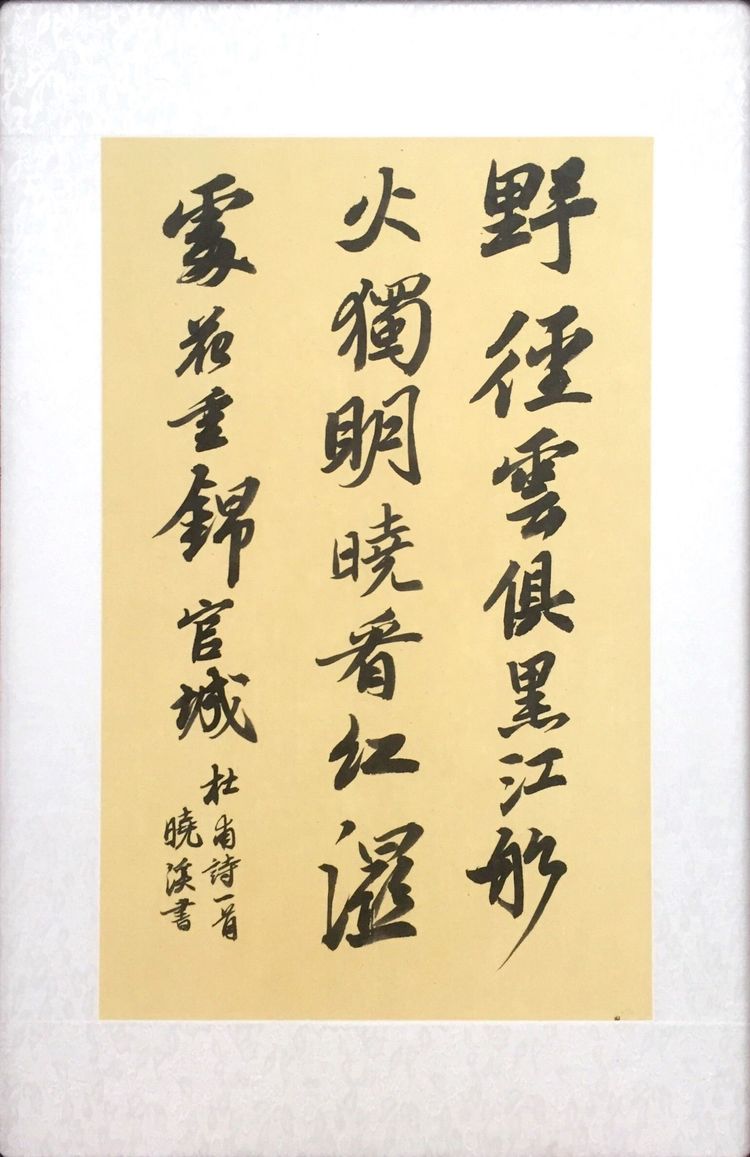 野徑雲俱黑江船
火獨明曉看紅濕
處花重錦官城
杜甫詩一首
曉溪書